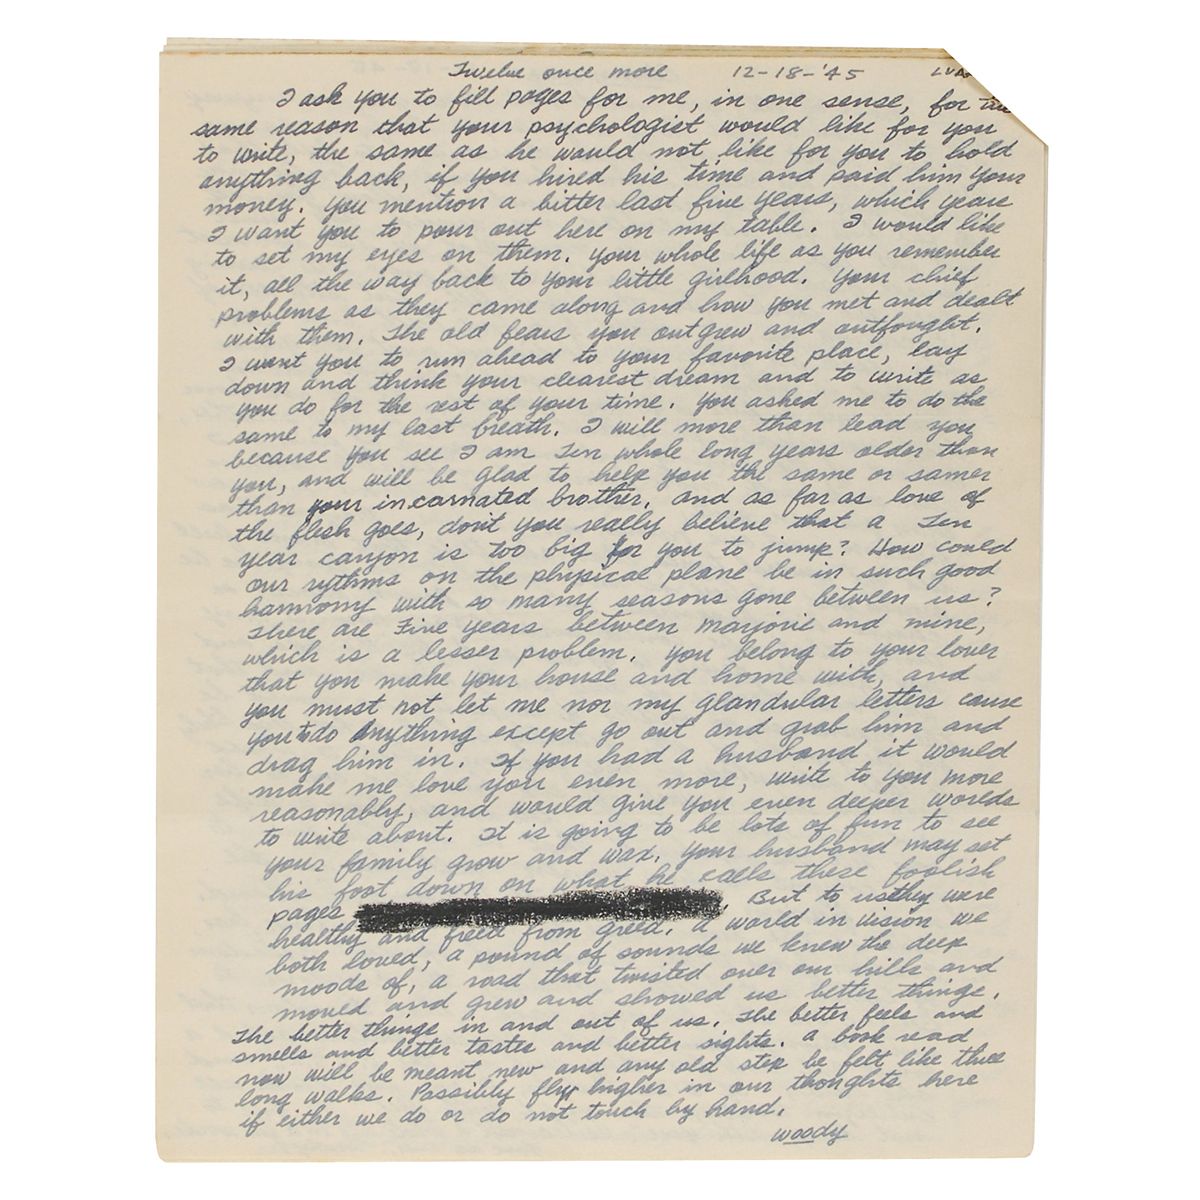 Twelve once more 12-18-'45
I ask you to fill pages for me, in one sense, for the
same reason that your psychologist would like for you
to write, the same as he would not like for you to hold
anything back, if you hired his time and paid him your
money. You mention a bitter last five years, which years
I want you to pour out here on my table. I would like
to set my eyes on them. Your whole life as you remember
it, all the way back to your little girlhood. Your chief
problems as they came along and how you met and dealt
with them. The old fears you outgrew and outfought.
I want you to run ahead to your favorite place, lay
down and think your clearest dream and to write as
you do for the rest of your time. You asked me to do the
same to my last breath. I will more than lead you
because you see I am Ten whole long years older than
you, and will be glad to help you the same or samer
than your incarnated brother. and as far as love of
the flesh goes, don't you really believe that a Ten
year canyon is too big for you to jump? How could
our rythms on the physical plane be in such good
harmony with so many seasons gone between us?
There are Five years between marjorie and mine,
which is a lesser problem. You belong to your lover
that you make your house and home with, and
you must not let me nor my glandular letters cause
you to do anything except go out and grab him and
drag him in. If you had a husband it would
make me love you even more, write to you more
reasonably, and would give you even deeper worlds
to write about. It is going to be lots of fun to see
your family grow and wax. Your husband may set
his foot down on what he calls these foolish
pages But to us they were
healthy and freed from greed. a world in vision we
both loved, a pound of sounds we knew the deep
moods of, a road that twisted over our hills and
moved and grew and showed us better things.
The better things in and out of us. The better feels and
smells and better tastes and better sights. A book read
now will be meant new and any old step be felt like three
long walks. Possibly fly higher in our thoughts here
if either we do or do not touch by hand.
woody